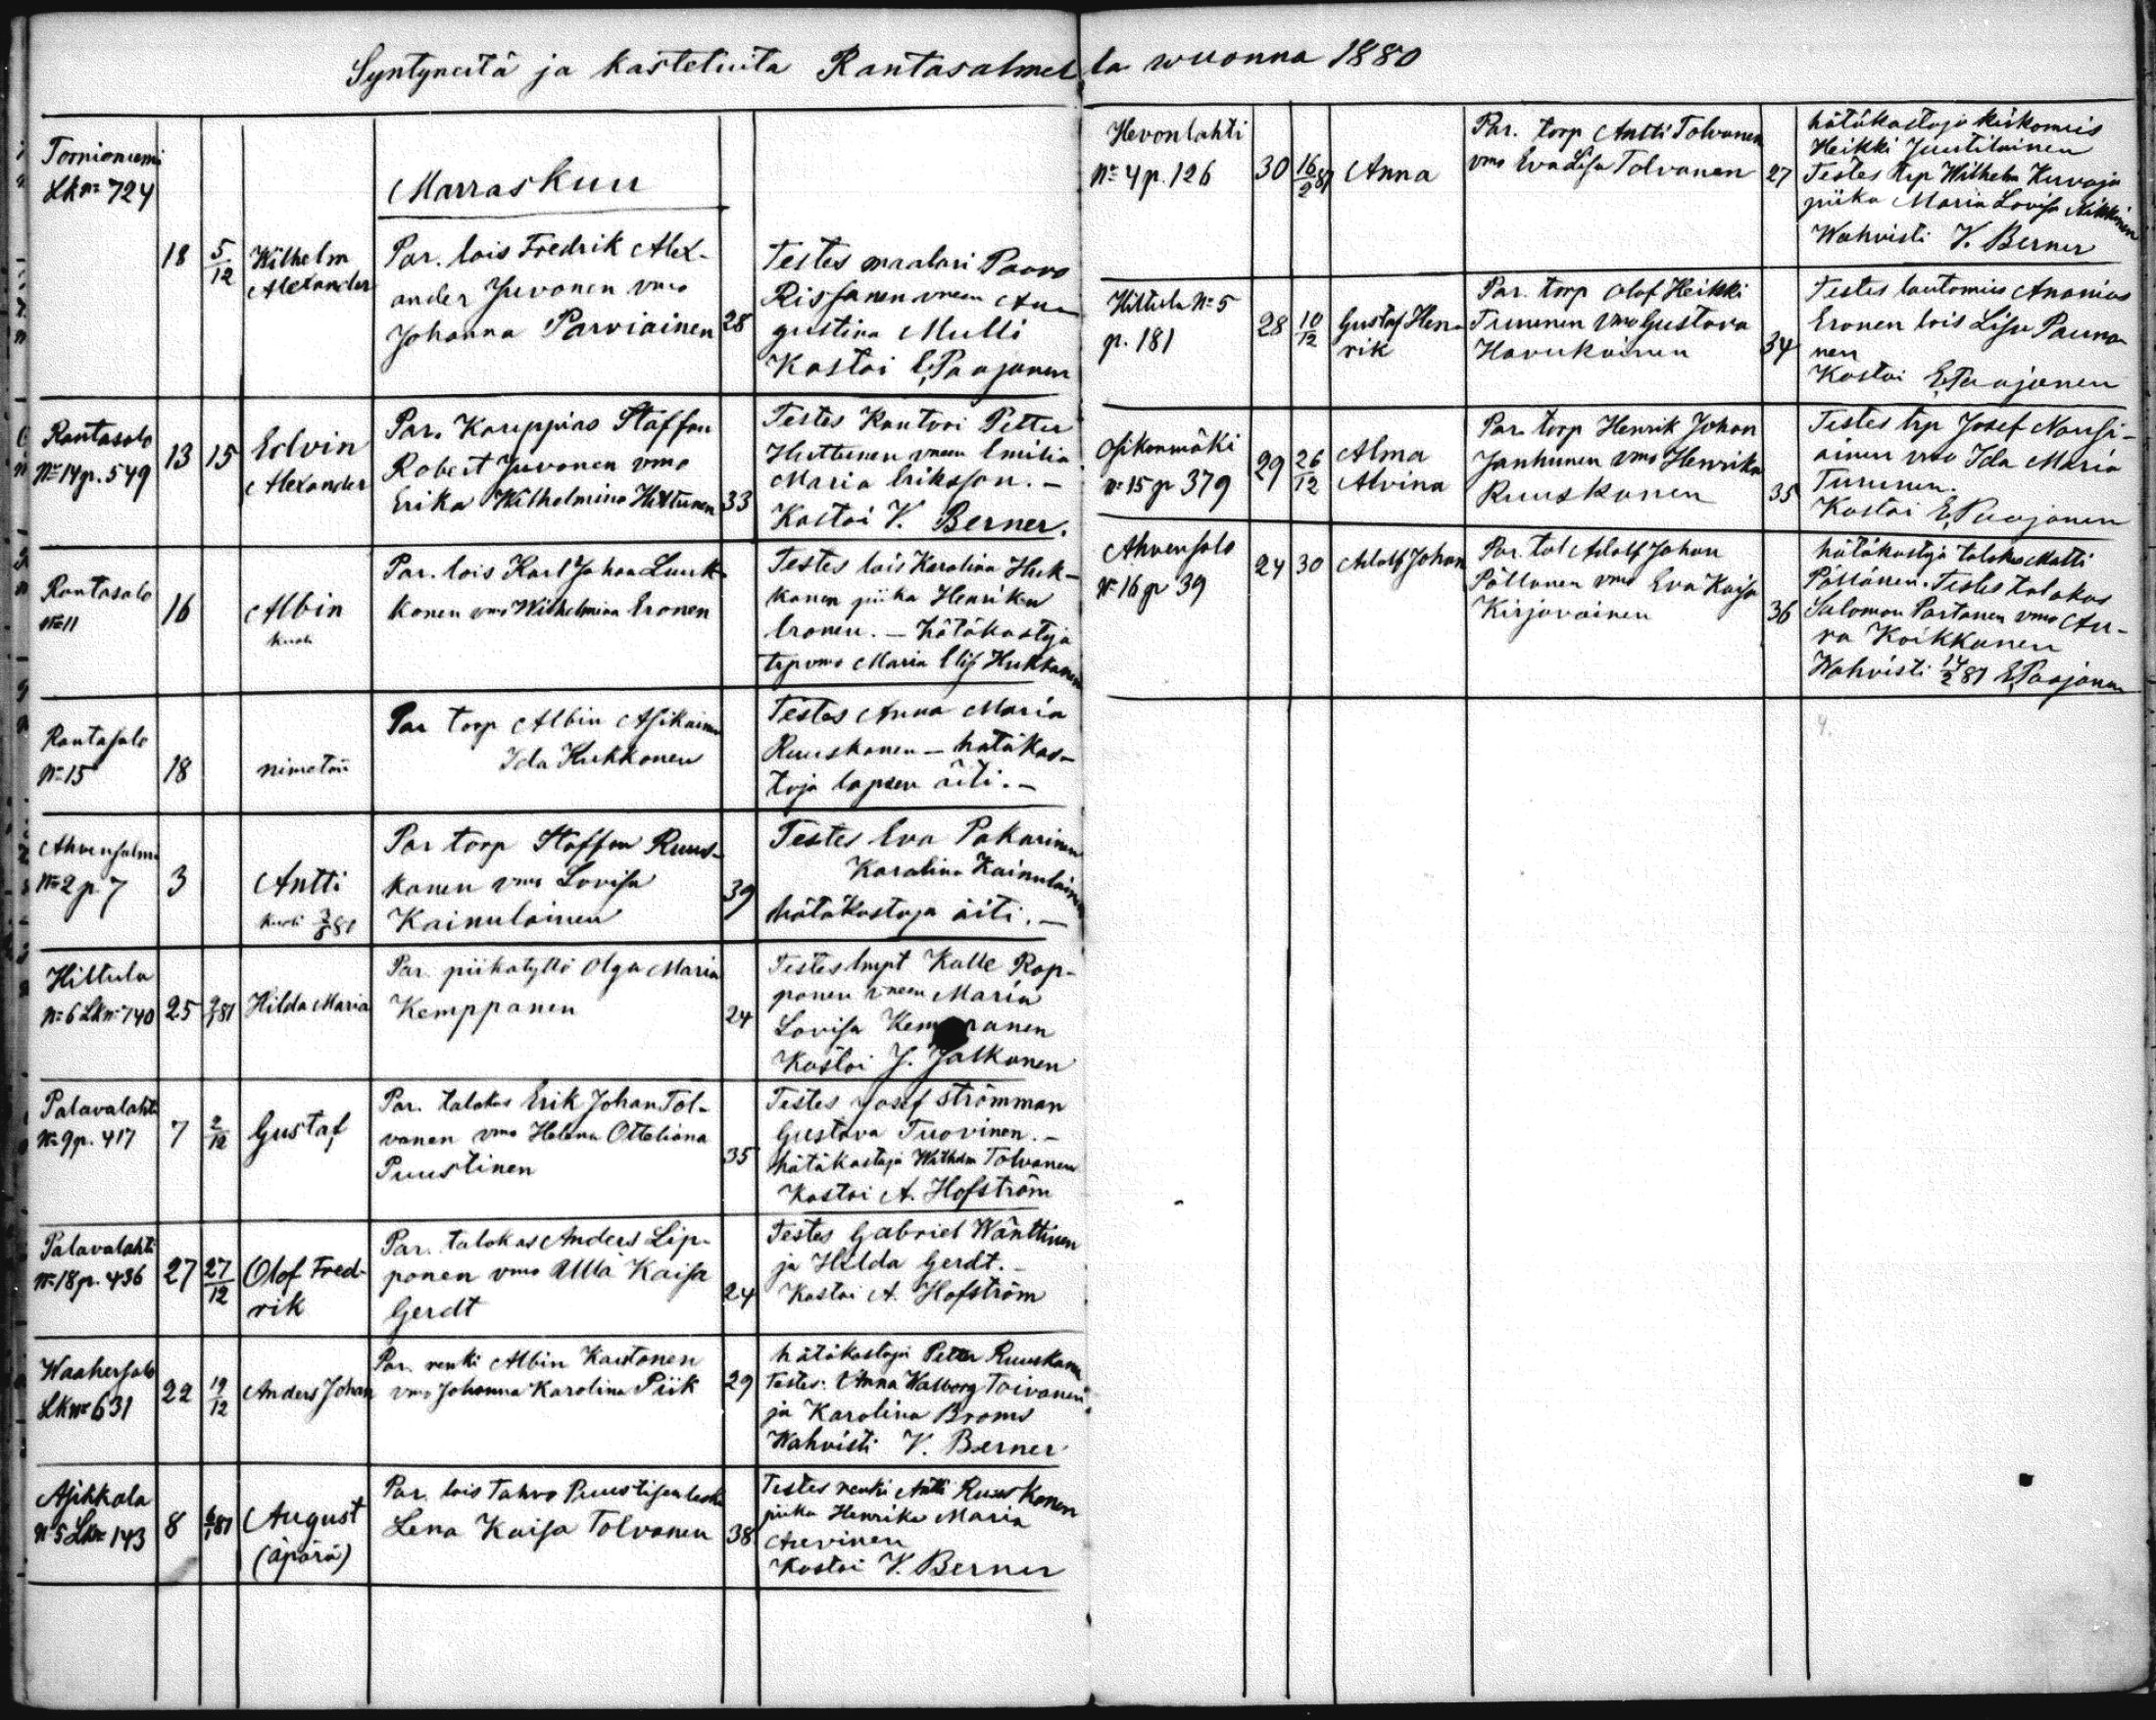 Syntyneitä ja kastetuita Rantasalmella wuonna 1880
Tornioniemi
Lkn= 724
Marraskuu
18 5/12 Wilhelm
Alexander
Par. lois Fredrik Alex-
ander Juvonen vmo
Johanna Parviainen 28
Testes maalari Paavo
Rissanen vneen Au-
gustina Mulli
Kastoi E, Paajanen
Rantasalo
N=14 p. 549
13 15 Edvin
Alexander
Par. Kauppias Staffan
Robert Juvonen vmo
Erika Wilhelmina Hilttunen 33
Testes Kantori Petter
Huttunen vneen Emilia
Maria Eriksson. –
Kastoi V. Berner.
Rantasalo
N=11
16 Albin
kuoli
Par. lois Karl Johan Luuk-
konen vmo Wilhelmina Eronen
Testes lois Karolina Huk-
kanen piika Henrika
Eronen. – hätäkastaja
trp vmo Maria Elis Hukkanen
Rantasalo
N=15
18 nimetön
Par torp Albin Asikainen
Ida Kukkonen
Testes Anna Maria
Ruuskanen – hätäkas-
toja lapsen äiti. –
Ahvensalmi
N=2 p. 7
3 Antti
kuoli 81
Par torp Staffan Ruus-
kanen vmo Lovisa
Kainulainen 39
Testes Eva Pakarinen
Karolina Kainulainen
hätäkastaja äiti. –
Hiltula
N=6 Lkn= 740
25 81 Hilda Maria
Par. piikatyttö Olga Maria
Kemppanen 24
Testes Inpt Kalle Rop-
ponen vneen Maria
Lovisa Kem ranen
Kastoi J. Jalkanen
Palavalahti
N=9 p. 417
7 2/12 Gustaf
Par. talokas Erik Johan Tol-
vanen vmo Helena Otteliana
Puustinen 35
Testes Josef Strömman
Gustava Tuovinen. –
hätäkastaja Wilhelm Tolvanen
Kastoi A. Hofström
Palavalahti
N=18 p. 436
27 27/12 Olof Fred-
rik
Par. talokas Anders Lip-
ponen vmo Ulla Kaisa
Gerdt 24
Testes Gabriel Wänttinen
ja Hilda Gerdt. –
Kastoi A. Hofström
Waahersalo
Lkn= 631
22 19/12 Anders Johan
Par. renki Albin Kautonen
vmo Johanna Karolina Piik 29
hätäkastaja Petter Ruuskanen
Testes: Anna Walborg Toivanen
ja Karolina Broms
Wahvisti V. Berner
Asikkala
N=5 Lkn= 143
8 6/1 81 August
(äpärä)
Par. lois Tahvo Puustisen leski
Lena Kaisa Tolvanen 38
Testes renki Antti Ruuskanen
piika Henrika Maria
Auvinen
Kastoi V. Berner
Hevonlahti
N=4 p. 126
30 16/2 81 Anna
Par. torp Antti Tolvanen
vmo Eva Lisa Tolvanen 27
hätäkastaja kirkomies
Heikki Juutilainen
Testes trp Wilhelm Kuvaja
piika Maria Lovisa Nikkinen
Wahvisti V. Berner
Hiltula N=5
p. 181
28 10/12 Gustaf Hen-
rik
Par. torp Olof Heikki
Turunen vmo Gustava
Havukainen 34
Testes lautamies Ananias
Eronen lois Lisa Pauno-
nen
Kastoi E, Paajanen
Osikonmäki
N=15 p 379
29 26/12 Alma
Alvina
Par. torp Henrik Johan
Janhunen vmo Henrika
Ruuskanen 35
Testes trp Josef Nousi-
ainen vmo Ida Maria
Turunen.
Kastoi E, Paajanen
Ahvensalo
N=16 p 39
24 30 Adolf Johan
Par. tal Adolf Johan
Pöllänen vmo Eva Kaisa
Kirjavainen 36
hätäkastaja talokas Matti
Pöllänen. Testes talokas
Salomon Partanen vmo An-
na Koikkanen
Wahvisti 14/2 81 E, Paajanen